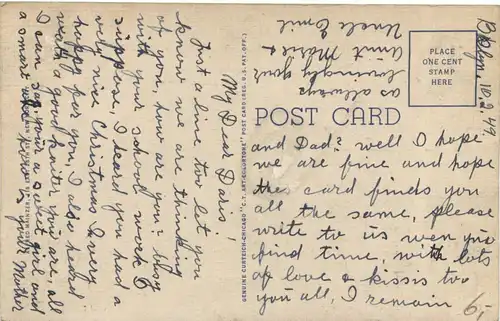 My Dear Doris!
Just a line too let you
know we are thinking
of you, how are you? busy
with your school work I
suppose, I heard you had a
very nice Christmas I very
happy for you, I also heard
watt a good haiter you are, all
I can say your a s girl and
a smart
your Mother
and Dad? well I hope
we are fine and hope
this card finds you
all the same, please
write to us wen you
find time, with lots
of love & kissis too
you all, I remain
as always
lovingly your
Aunt Marie &
Uncle Emil
Bklyn. 10. 2, 47.
PLACE
ONE CENT
STAMP
HERE
POST CARD
GENUINE CURTEICH-CHICAGO "C.T. ART-COLORTONE" POST CARD (REG. U.S. PAT. OFF.)
6,-